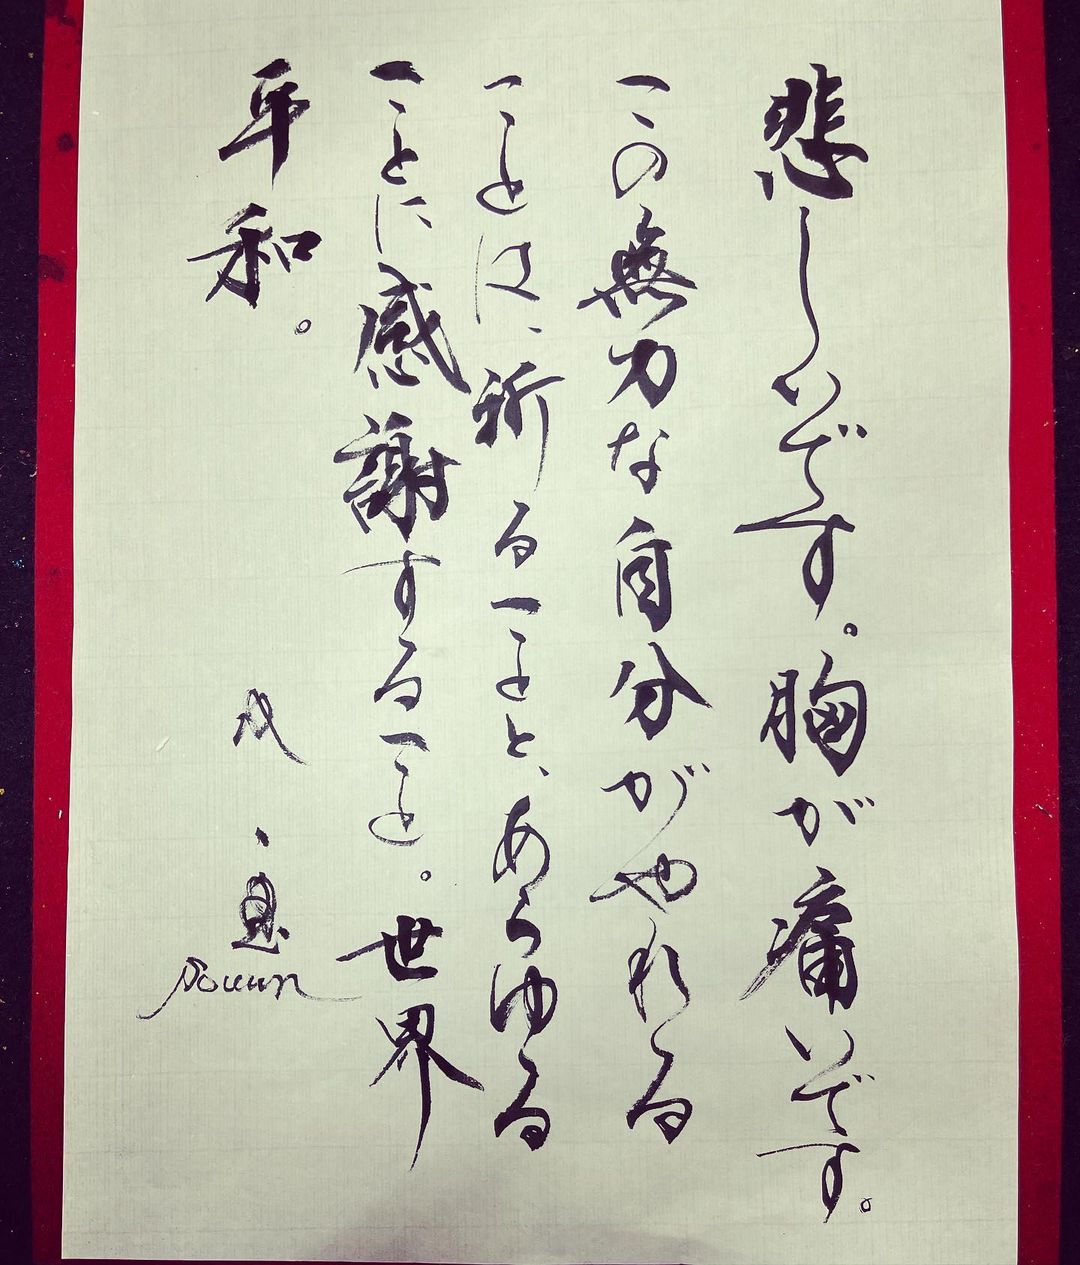 悲しいです。胸が痛いです。
この無力な自分がやれる
ことは、祈ることと、あらゆる
ことに感謝すること。世界
平和。